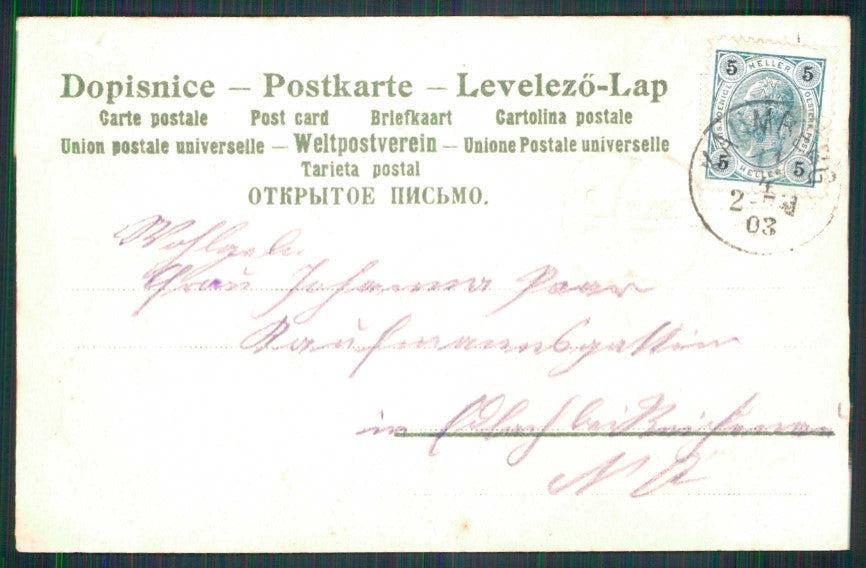 Dopisnice — Postkarte — Levelező-Lap
Carte postale Post card Briefkaart Cartolina postale
Union postale universelle — Weltpostverein — Unione Postale universelle
Tarjeta postal
ОТКРЫТОЕ ПИСЬМО.
5 HELLER 5
5 HELLER 5
03
Wohlgeb.
Frau Johanna Paar
Kaufmannsgattin
in Edlach bei Reichenau
N Ö